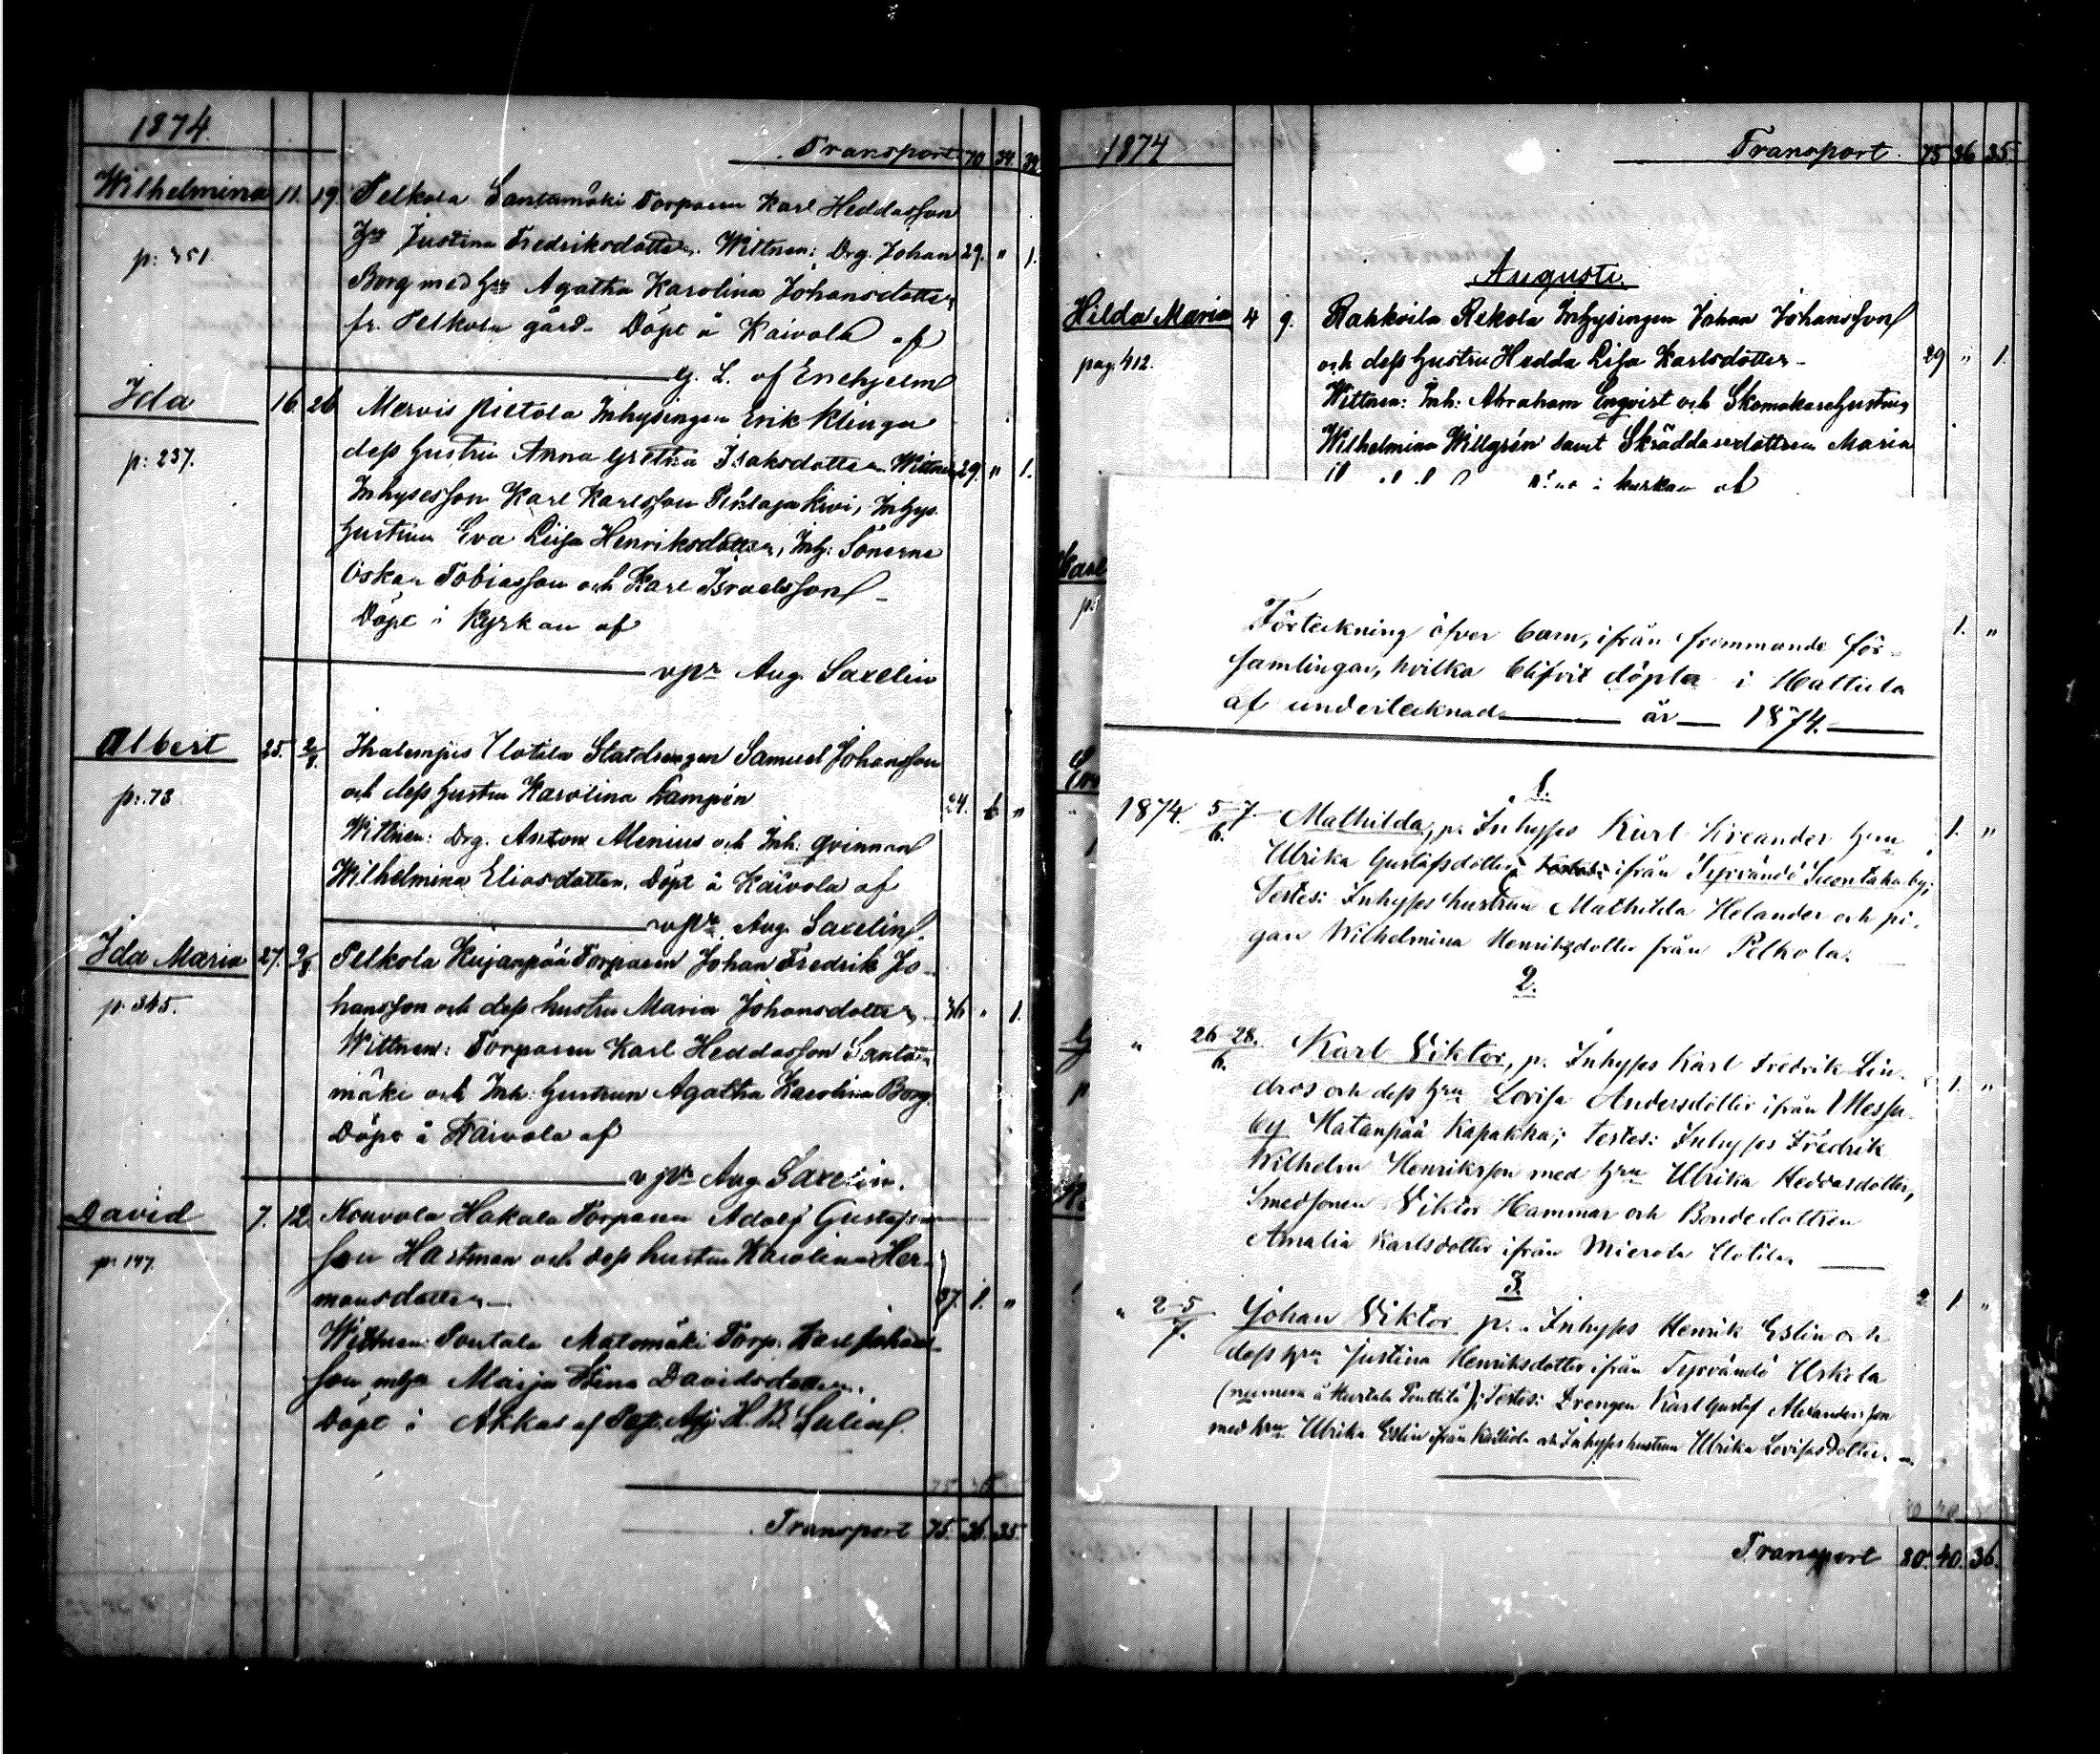 1874.
Transport 70 34 34
Wilhelmina 11. 19. Pelkola Santamäki Torparen Karl Heddasson
Hu Justina Fredriksdotter. Wittnen: Drg. Johan 29. " 1.
p: 351
Borg med Hu Agatha Karolina Johansdotter
fr. Pelkola gård. Döpt å Kaivola af
G. L. af Enehjelm
Ida 16. 26 Mervis Pietola Inhysingen Erik Klinga
p: 237.
dess hustru Anna Gretha Isaksdotter Wittnen 29. " 1.
Inhysesson Karl Karlsson Pihlajakivi, Inhys.
hustrun Eva Liisa Henriksdotter, Inh: Sönerne
Oskar Tobiasson och Karl Israelsson
Döpt i Kyrkan af
vpr Aug. Saxelin
Albert 25. 2/8. Ihalempis Uotila Statdrengen Samuel Johansson
p: 78
och dess hustru Karolina Lampén 24. 1 "
Wittnen: Drg. Anton Alenius och Inh. qvinnan
Wilhelmina Eliasdotter. Döpt å Kaivola af
vpr. Aug. Saxelin.
Ida Maria 27. 2/8. Pelkola Kujanpää Torparen Johan Fredrik Jo-
p. 345.
hansson och dess hustru Maria Johansdotter 36 " 1.
Wittnen: Torparen Karl Heddasson Santa-
mäki och Inh: Hustrun Agatha Karolina Borg.
Döpt å Kaivola af
vpr Aug. Saxelin.
David 7. 12 Konvola Hakala Torparen Adolf Gustafs-
p: 147
son Hartman och dess hustru Karolina Her-
mansdotter 37. 1. "
Wittnen: Matomäki Torp. Karl Johans-
son Maija Stina Davidsdotter.
Döpt i Akkas af H. B. Sulin.
Transport 75. 36. 35.
1874
Transport. 75 36 35
Augusti.
Hilda Maria 4 9. Rahkoila Rekola Inhysingen Johan Johansson
pag. 412.
och dess hustru Hedda Lisa Karlsdotter 29 " 1.
Wittnen: Inh: Abraham Engvist och Skomakarehustrun
Wilhelmina Willgrén samt Skräddaredottren Maria
i kyrkan af
Karl
p:
Förteckning öfver barn, ifrån främmande för-
samlingar, hvilka blifvit döpta i Hattula
af undertecknad år 1874.
1.
1874. 5-7/6. Mathilda, p. Inhyses Karl Kreander hru
Ulrika Gustafsdotter ifrån Tyrvändö Suontaka by;
Testes: Inhyses hustrun Mathilda Helander och pi-
gan Wilhelmina Henriksdotter från Pelkola.
2.
" 26-28/6. Karl Viktor, p. Inhyses Karl Fredrik Lin-
dros och dess hru Lovisa Andersdotter ifrån Messu-
by Hatanpää Kapakka; testes: Inhyses Fredrik
Wilhelm Henriksson med hru Ulrika Heddasdotter,
Smedsonen Viktor Hammar och Bondedottren
Amalia Karlsdotter ifrån Mierola Uotila.
3.
" 2-5/7. Johan Viktor p. Inhyses Henrik Eslin och
dess hru Justina Henriksdotter ifrån Tyrvändö Uskola
(numera å Hurtala Penttilä); Testes: Drengen Karl Gustaf Alexandersson
med hru Ulrika Eslin ifrån Kattiola och Inhyses hustrun Ulrika Lovisasdotter.
Transport 80. 40. 36.